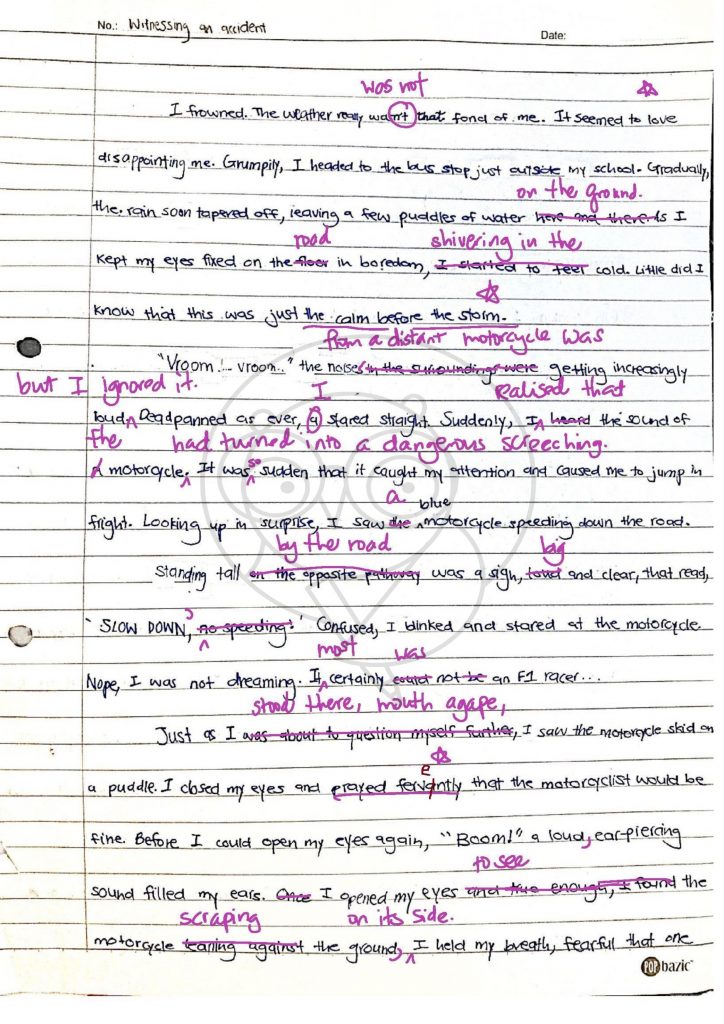 No.: Witnessing an accident
Date:
was not
I frowned. The weather really wasn't that fond of me. It seemed to love
disappointing me. Grumpily, I headed to the bus stop just outside my school. Gradually,
on the ground.
the rain soon tapered off, leaving a few puddles of water here and there. As I
road shivering in the
kept my eyes fixed on the floor in boredom, I started to feel cold. Little did I
know that this was just the calm before the storm.
from a distant motorcycle was
"Vroom... vroom.." the noises in the surroundings were getting increasingly
but I ignored it. I Realised that
loud. Deadpanned as ever, a stared straight. Suddenly, I heard the sound of
the had turned into a dangerous screeching.
A motorcycle. It was so sudden that it caught my attention and caused me to jump in
a blue
fright. Looking up in surprise, I saw the motorcycle speeding down the road.
by the road big
Standing tall on the opposite pathway was a sign, loud and clear, that read,
'SLOW DOWN, no speeding!' Confused, I blinked and stared at the motorcycle
most was
Nope, I was not dreaming. I certainly could not be an F1 racer...
stood there, mouth agape,
Just as I was about to question myself further, I saw the motorcycle skid on
e
a puddle. I closed my eyes and prayed fervantly that the motorcyclist would be
fine. Before I could open my eyes again, "Boom!" a loud, ear-piercing
to see
sound filled my ears. Once I opened my eyes and true enough, I found the
scraping on its side.
motorcycle leaning against the ground, I held my breath, fearful that one
POP bazic